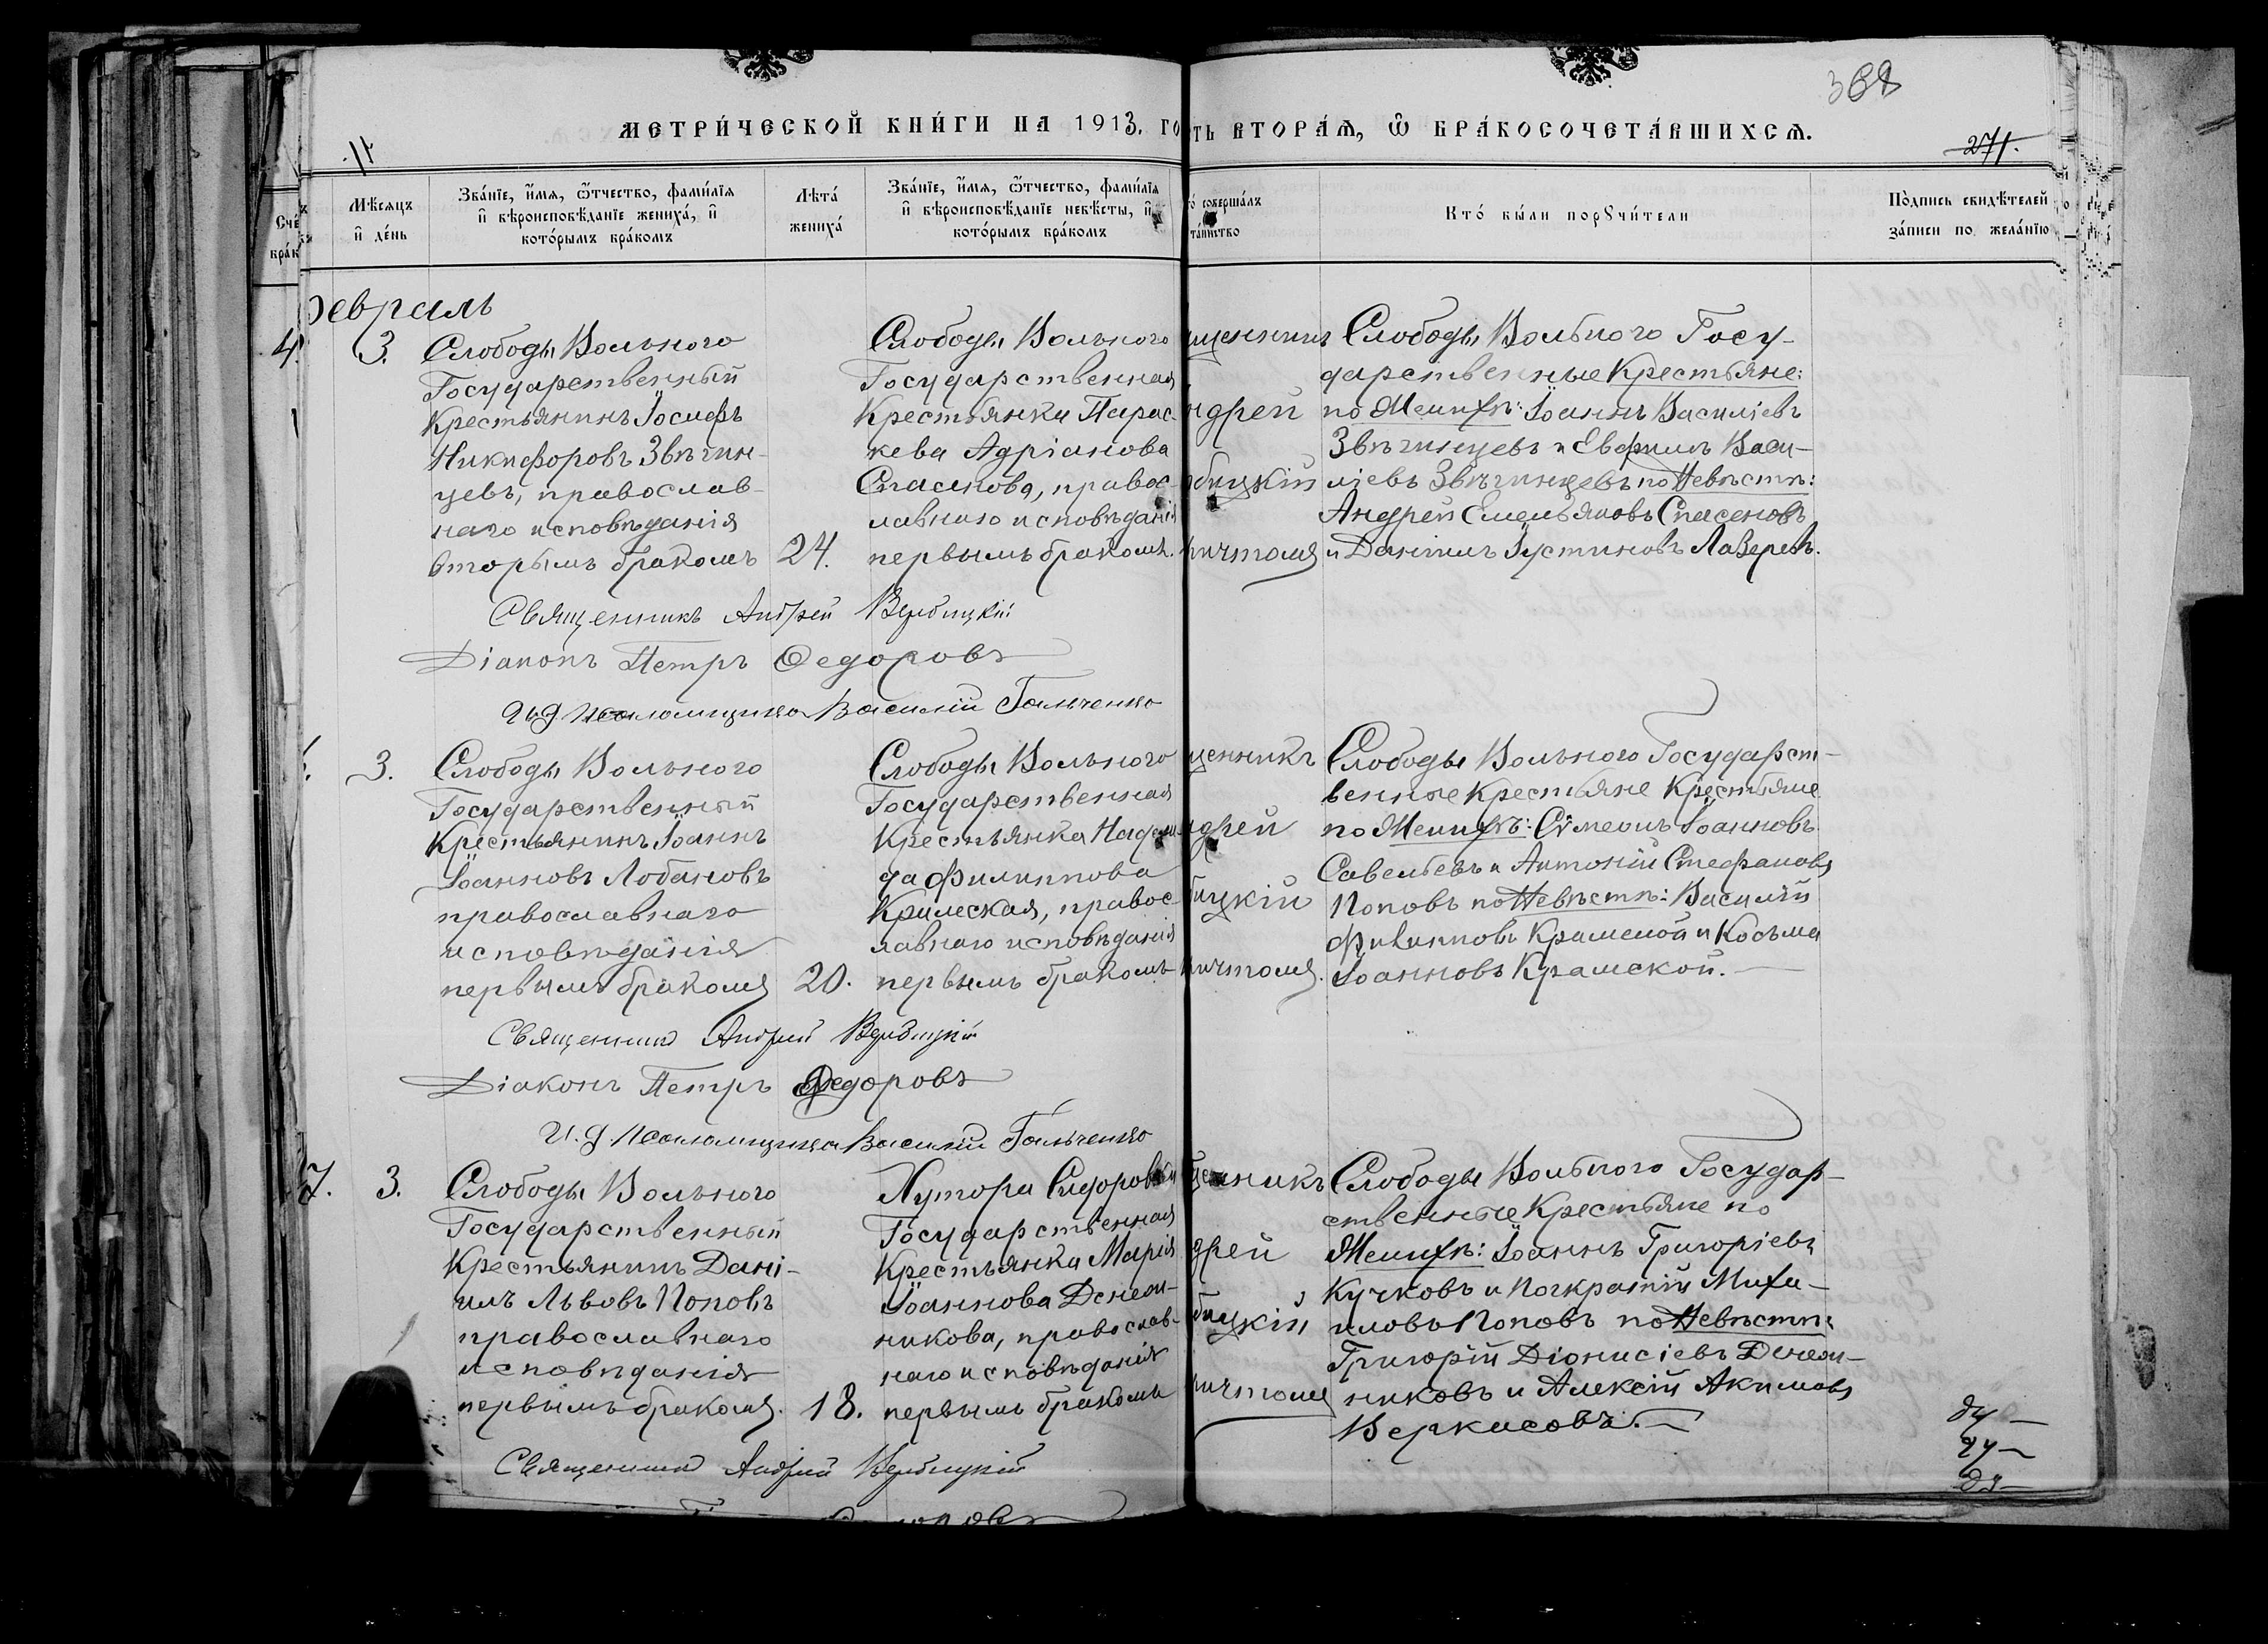 368
МЕТРИ́ЧЕСКОЙ КНИ́ГИ НА 1913. ГО
ТЬ ВТОРА́Ѧ, Ѿ БРА́КОСОЧЕТА́ВШИХСѦ.
271.
Сче́
бра́к
Мѣ́сяцъ
и҆ де́нь
Зва́нїе, и҆́мѧ, ѻ҆́тчество, фами́лїѧ
и҆ вѣроисповѣ́данїе жениха́, и҆
кото́рымъ бра́комъ
Лѣта́
жениха́
Зва́нїе, и҆́мѧ, ѻ҆́тчество, фами́лїѧ
и҆ вѣроисповѣ́данїе невѣ́сты, и҆
кото́рымъ бра́комъ
соверша́лъ
та́инство
Кто́ бы́ли порꙋчи́тели
По́дпись свидѣ́телей
за́писи по жела́нїю
евраль
4. 3.
Слободы Вольного
Государственный
Крестьянинъ Іосифъ
Никифоровъ Звѣгин-
цевъ, православ-
наго исповѣданія
вторымъ бракомъ
24.
Слободы Вольного
Государственная
Крестьянка Парас-
кева Адріанова
Спасенова, правос-
лавнаго исповѣданія
первымъ бракомъ.
щенникъ
ндрей
бицкій
ричтомъ
Слободы Вольного Госу-
дарственные Крестьяне:
по Женихѣ: Іоаннъ Василіевъ
Звѣгинцевъ и Евфимъ Васи-
ліевъ Звѣгинцевъ по Невѣстѣ:
Андрей Емельяновъ Спасеновъ
и Даніилъ Іустиновъ Лазеревъ.
Священникъ Андрей Вербицкій
Діаконъ Петръ Ѳедоровъ
И.д. псаломщика Василій Гальченко
3.
Слободы Вольного
Государственный
Крестьянинъ Іоаннъ
Іоанновъ Лобановъ
православнаго
исповѣданія
первымъ бракомъ
20.
Слободы Вольного
Государственная
Крестьянка Надеж-
да Филиппова
Крамская, правос-
лавнаго исповѣданія
первымъ бракомъ
щенникъ
ндрей
бицкій
ричтомъ.
Слободы Вольного Государст-
венные Крестьяне Крестьяне
по Женихѣ: Сѵмеонъ Іоанновъ
Савельевъ и Антоній Стефановъ
Поповъ по Невѣстѣ: Василій
Филипповъ Крамской и Косьма
Іоанновъ Крамской.
Священникъ Андрей Вербицкій
Діаконъ Петръ Ѳедоровъ
И.д. Псаломщика Василій Гальченко
7. 3.
Слободы Вольного
Государственный
Крестьянинъ Дані-
илъ Львовъ Поповъ
православнаго
исповѣданія
первымъ бракомъ.
18.
Хутора Сидоровки
Государственная
Крестьянка Марія
Іоаннова
никова, православ-
наго исповѣданія
первымъ бракомъ
щенникъ
дрей
бицкій
ричтомъ
Слободы Вольного Государ-
ственные Крестьяне по
Женихѣ: Іоаннъ Григоріевъ
Кучковъ и Панкратій Миха-
иловъ Поповъ по Невѣстѣ:
Григорій Діонисіевъ
никовъ и Алексій Акимовъ
Веркасовъ.
Священникъ Андрей Вербицкій